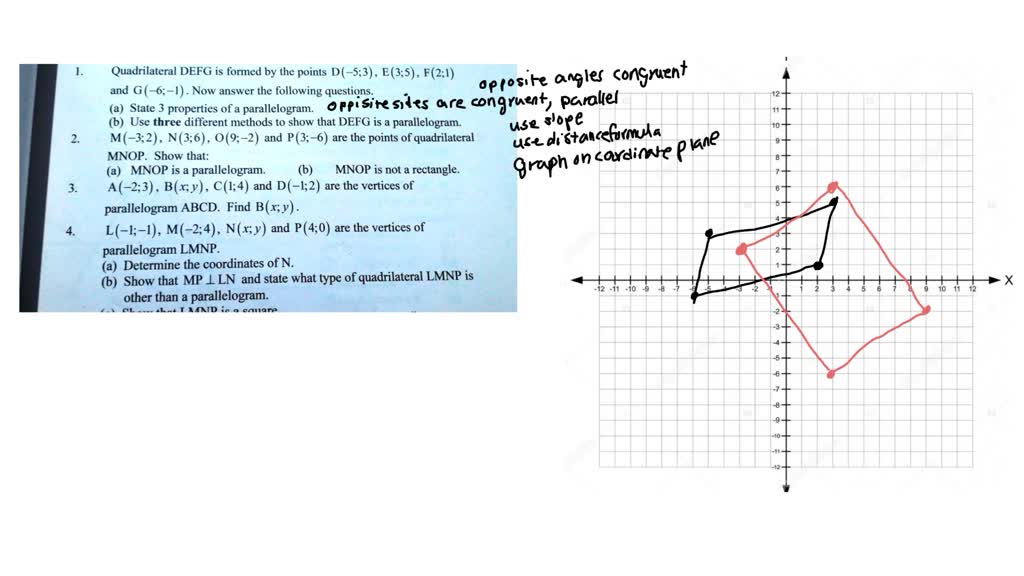 1. Quadrilateral DEFG is formed by the points D(−5;3), E(3;5), F(2;1)
and G(−6;−1). Now answer the following questions.
(a) State 3 properties of a parallelogram.
(b) Use three different methods to show that DEFG is a parallelogram.
2. M(−3;2), N(3;6), O(9;−2) and P(3;−6) are the points of quadrilateral
MNOP. Show that:
(a) MNOP is a parallelogram. (b) MNOP is not a rectangle.
3. A(−2;3), B(x;y), C(1;4) and D(−1;2) are the vertices of
parallelogram ABCD. Find B(x;y).
4. L(−1;−1), M(−2;4), N(x;y) and P(4;0) are the vertices of
parallelogram LMNP.
(a) Determine the coordinates of N.
(b) Show that MP ⊥ LN and state what type of quadrilateral LMNP is
other than a parallelogram.
opposite angles congruent
oppisite sites are congruent, parallel
use slope
use distance formula
graph on cordinate plane
12
11
10
9
8
7
6
5
4
3
2
1
-12 -11 -10 -9 -8 -7 -6 -5 -3 -2 1 2 3 4 5 6 7 8 9 10 11 12 X
-1
-2
-3
-4
-5
-6
-7
-8
-9
-10
-11
-12